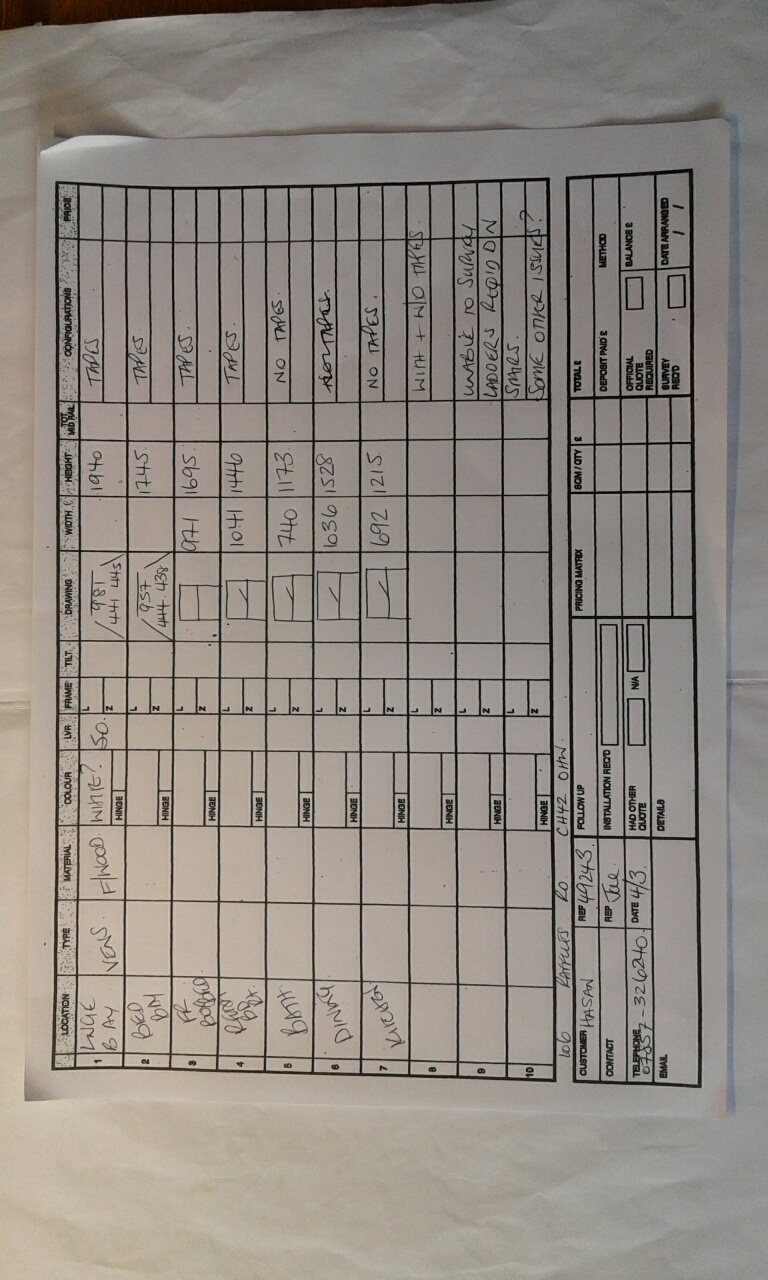 LOCATION TYPE MATERIAL COLOUR LVR FRAME TILT DRAWING WIDTH HEIGHT TOT MID RAIL CONFIGURATIONS PRICE
1 LNGE BAY VENS F/WOOD WHITE? 50. HINGE L Z 981 441 445 1940 TAPES
2 BED BAY HINGE L Z 957 444 438 1745. TAPES.
3 FR HINGE L Z 971 1695. TAPES.
4 HINGE L Z 1041 1446 TAPES.
5 BATH HINGE L Z 740 1173 NO TAPES.
6 DINING HINGE L Z 1036 1528
7 KITCHEN HINGE L Z 692 1215 NO TAPES.
8 HINGE L Z WITH + W/O TAPES.
9 HINGE L Z UNABLE TO SURVEY
LADDERS REQ'D ON
10 HINGE L Z STAIRS.
SOME OTHER ISSUES?
106 RAFFLES RD CH42 0HW.
CUSTOMER HASAN REF 49243 FOLLOW UP PRICING MATRIX SQM / QTY £ TOTAL £
CONTACT REP INSTALLATION REQ'D DEPOSIT PAID £ METHOD
TELEPHONE 07857-326240. DATE 4/3. HAD OTHER QUOTE N/A OFFICIAL QUOTE REQUIRED BALANCE £
EMAIL DETAILS SURVEY REQ'D DATE ARRANGED / /